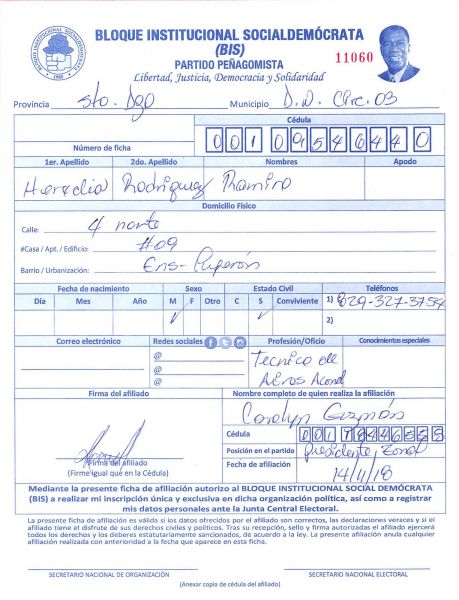 BLOQUE INSTITUCIONAL SOCIALDEMÓCRATA
(BIS)
PARTIDO PEÑAGOMISTA
11060
Libertad, Justicia, Democracia y Solidaridad
Provincia Sto. Dgo Municipio D.N. Circ. 03
Cédula
Número de ficha
1er. Apellido 2do. Apellido Nombres Apodo
Heredia Rodriguez Ramiro
Domicilio Físico
Calle: 4 norte
#Casa / Apt. / Edificio: #09
Barrio / Urbanización: Ens-
Fecha de nacimiento Sexo Estado Civil Teléfonos
Día Mes Año M F Otro C S Conviviente 1) 829-327-3754
2)
Correo electrónico Redes sociales Profesión/Oficio Conocimientos especiales
@ Tecnico de
@ Aires Acond
@
Firma del afiliado Nombre completo de quien realiza la afiliación
Carolyn Guzmán
Cédula
Posición en el partido Presidente Zonal
Firma del afiliado
(Firme igual que en la Cédula)
Fecha de afiliación 14/11/18
Mediante la presente ficha de afiliación autorizo al BLOQUE INSTITUCIONAL SOCIAL DEMÓCRATA
(BIS) a realizar mi inscripción única y exclusiva en dicha organización política, así como a registrar
mis datos personales ante la Junta Central Electoral.
La presente ficha de afiliación es válida si los datos ofrecidos por el afiliado son correctos, las declaraciones veraces y si el
afiliado tiene el disfrute de sus derechos civiles y políticos. Tras su recepción, sello y firma autorizadas el afiliado ejercerá
todos los derechos y los deberes estatutariamente sancionados, de acuerdo a la ley. La presente afiliación anula cualquier
afiliación realizada con anterioridad a la fecha que aparece en esta ficha.
SECRETARIO NACIONAL DE ORGANIZACIÓN SECRETARIO NACIONAL ELECTORAL
(Anexar copia de cédula del afiliado)